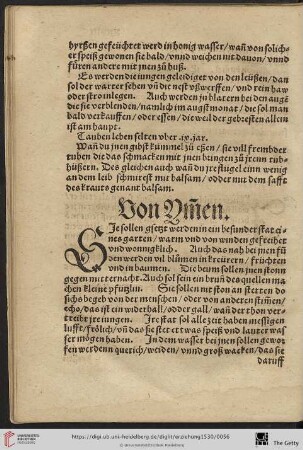 hyrßen gefeüchtet werd in honig wasser/ wañ von solich
er speiß gewonen sie bald/ vnnd weichen nit dauon/ vnnd
füren andere mit jnen zů huß.
Es werden die iungen geleidiget von den leüßen/ dan
sol der warter sehen vñ die nest vßwerffen/ vnd rein haw
oder stro inlegen. Auch werden jn blatern bei den augē
die sie verblenden/ namlich im augstmonat/ die sol man
bald verkauffen/ oder essen/ die weil der gebresten allein
ist am haupt.
Tauben leben selten vber .ix. jar.
Wañ du jnen gibst kümmel zů eßen/ sie vill frembder
tuben die das schmacken mit jnen bringen zů jrem tub-
hüßern. Des gleichen auch wañ du jre flugel einn wenig
an dem leib schmirest mit balsam/ odder mit dem safft
des krauts genant balsam.
Von Ymen.
SJe sollen gsetzt werden in ein besunder stat ei-
nes garten/ warm vnd von winden gefreihet
vnd wonniglich. Auch das nah bei jnen fü
den werden vil blůmen in kreütern/ früchten
vnd in baumen. Die beum sollen jnen stonn
gegen mitternacht. Auch sol sein ein brůñ des quellen ma
chen kleine pfützlin. Sie sollen nit ston an stetten do
sichs begeb von der menschen/ oder von anderen stimēn/
echo/ das ist ein widerhall/ odder gall/ wañ der thon ver-
treibt jre iungen. Jre stat sol alle zeit haben messigen
lufft/ frölich/ vñ das sie stet ett was speiß vnd lauter was
ser mögen haben. In dem wasser bei jnen sollen gewor
fen werdenn querich/ weiden/ vnnd groß wacken/ das sie
daruff
https://digi.ub.uni-heidelberg.de/diglit/erziehung1530/0056
© Universitätsbibliothek Heidelberg
The Getty
UNIVERSITÄTS-
BIBLIOTHEK
HEIDELBERG